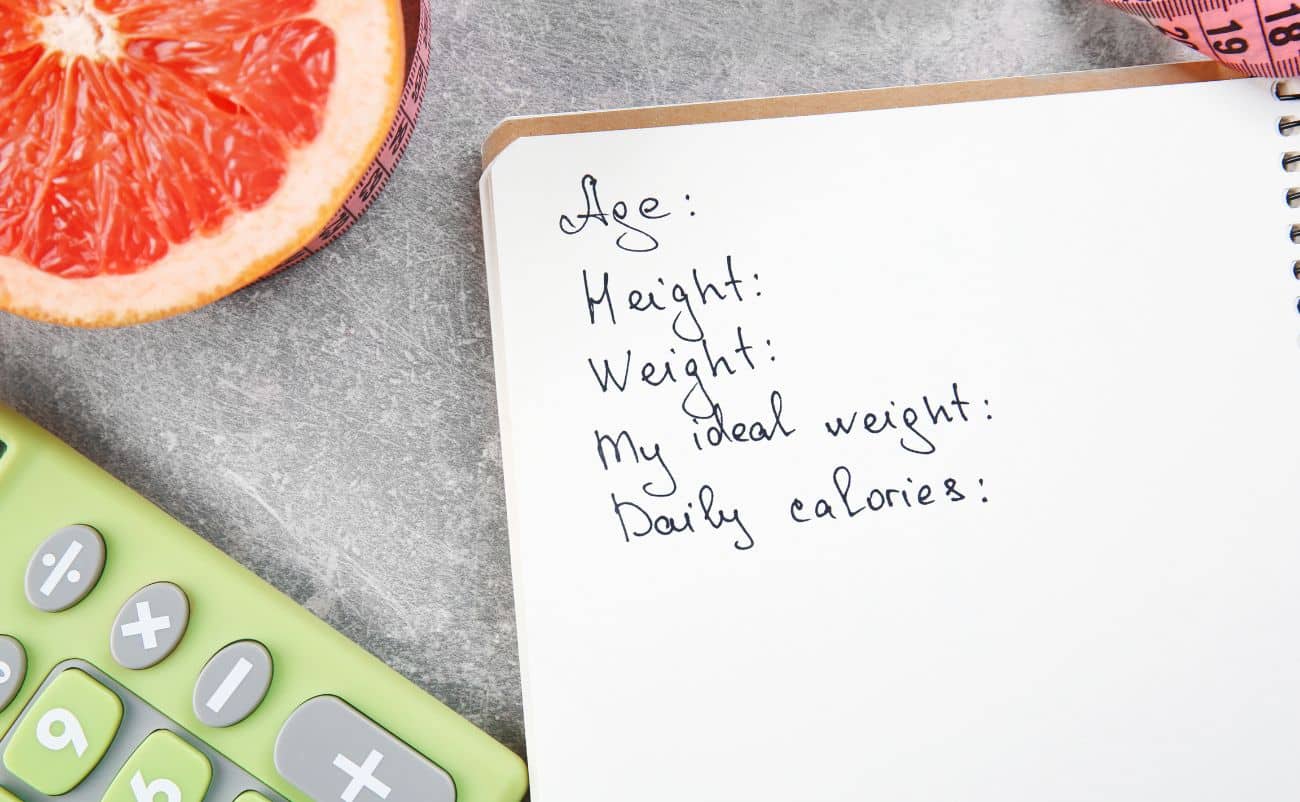 18
19
Age:
Height:
Weight:
My ideal weight:
Daily calories:
÷
×
−
+
9
6